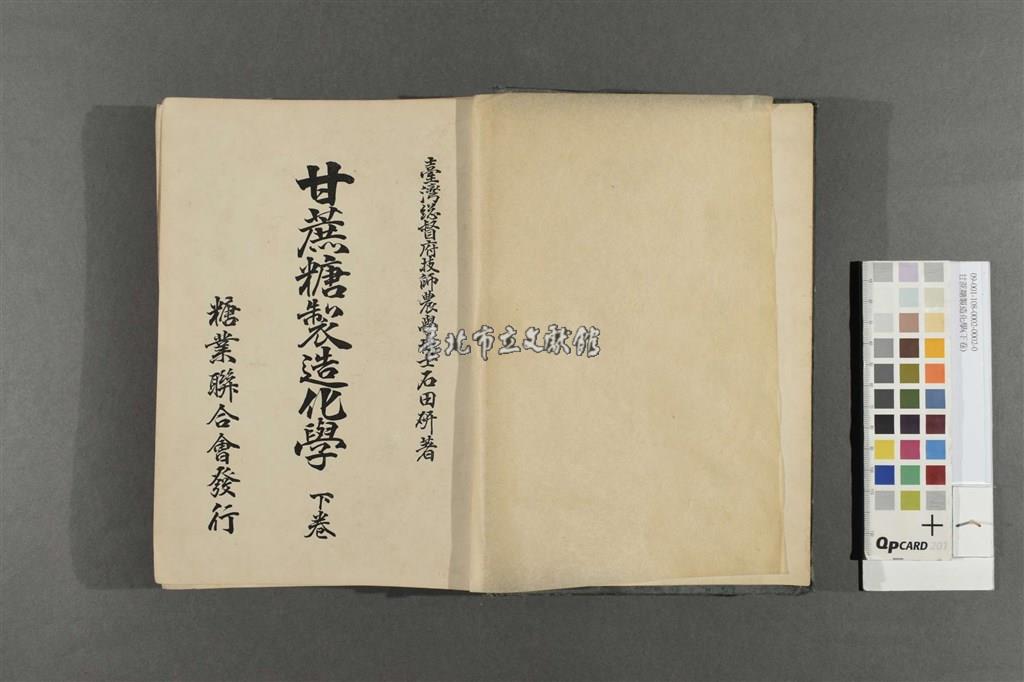 臺灣総督府技師農學士石田研著
甘蔗糖製造化學 下卷
糖業聯合會發行
臺北市立文獻館
09-001-108-0002-0002-0
甘蔗糖製造化學(下卷)
QPCARD 201